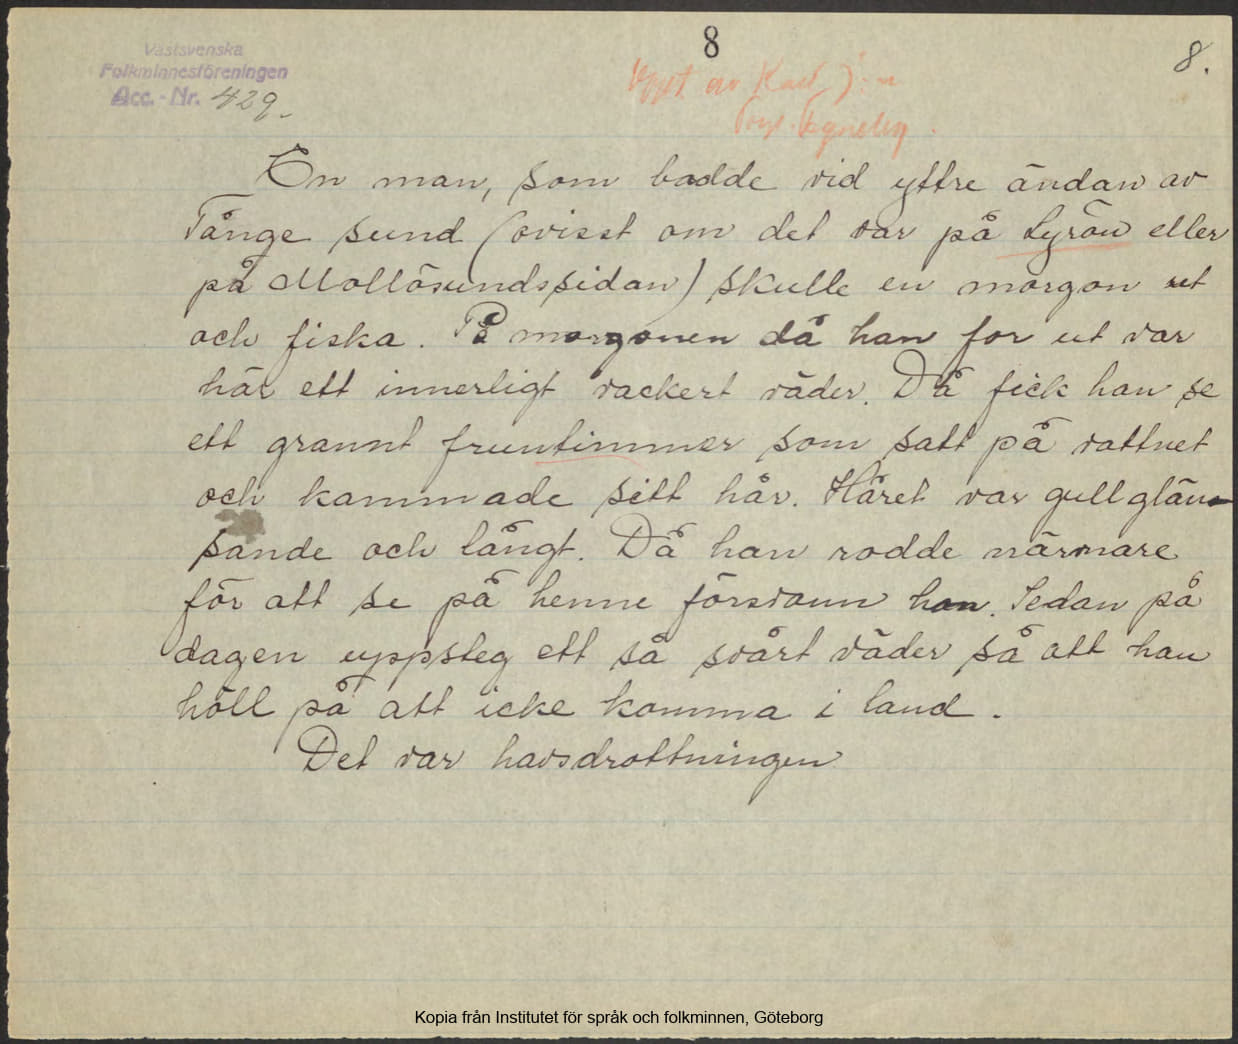 8
8.
Västsvenska
Folkminnesföreningen
Acc.-Nr. 429.
Uppt av Karl J:n
En man, som bodde vid yttre ändan av
Tånge sund (ovisst om det var på Lyrön eller
på Mollösundssidan) skulle en morgon ut
och fiska. På morgonen då han for ut var
här ett innerligt vackert väder. Då fick han se
ett grannt fruntimmer som satt på vattnet
och kammade sitt hår. Håret var gullglän-
sande och långt. Då han rodde närmare
för att se på henne försvann hon. Sedan på
dagen uppsteg ett så svårt väder så att han
höll på att icke komma i land.
Det var havsdrottningen
Kopia från Institutet för språk och folkminnen, Göteborg